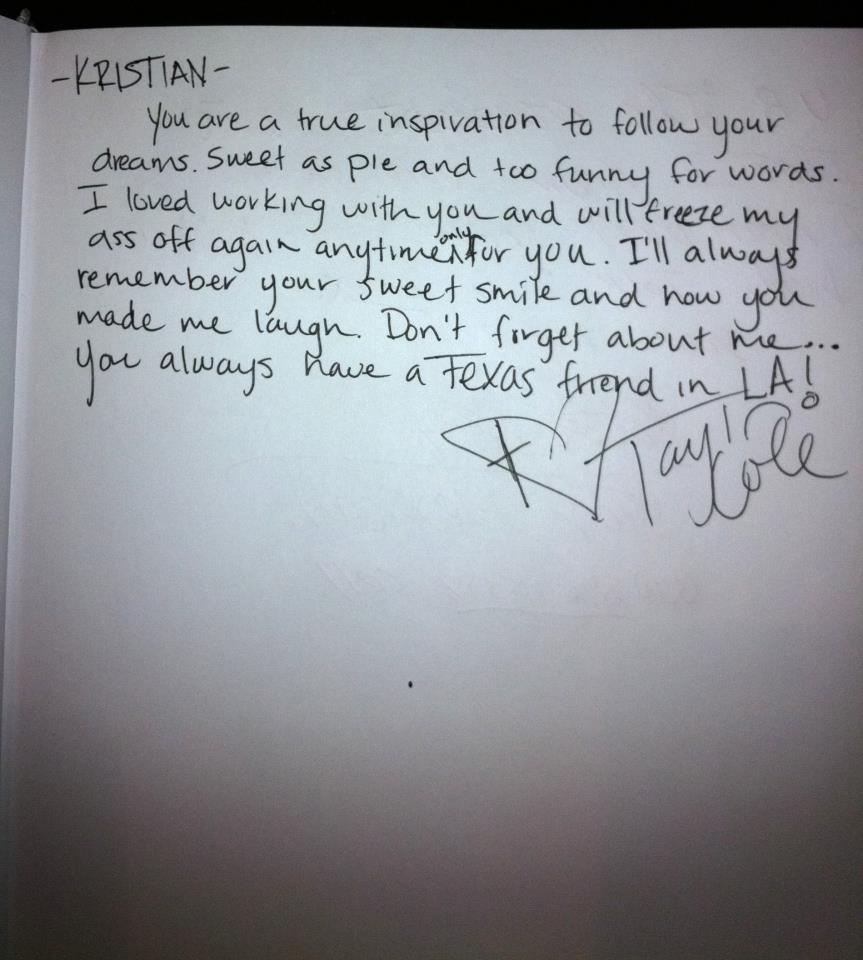 -KRISTIAN-
You are a true inspiration to follow your
dreams. Sweet as pie and too funny for words.
I loved working with you and will freeze my
ass off again anytime only for you. I'll always
remember your sweet smile and how you
made me laugh. Don't forget about me...
you always have a Texas friend in LA!
Tay Cole